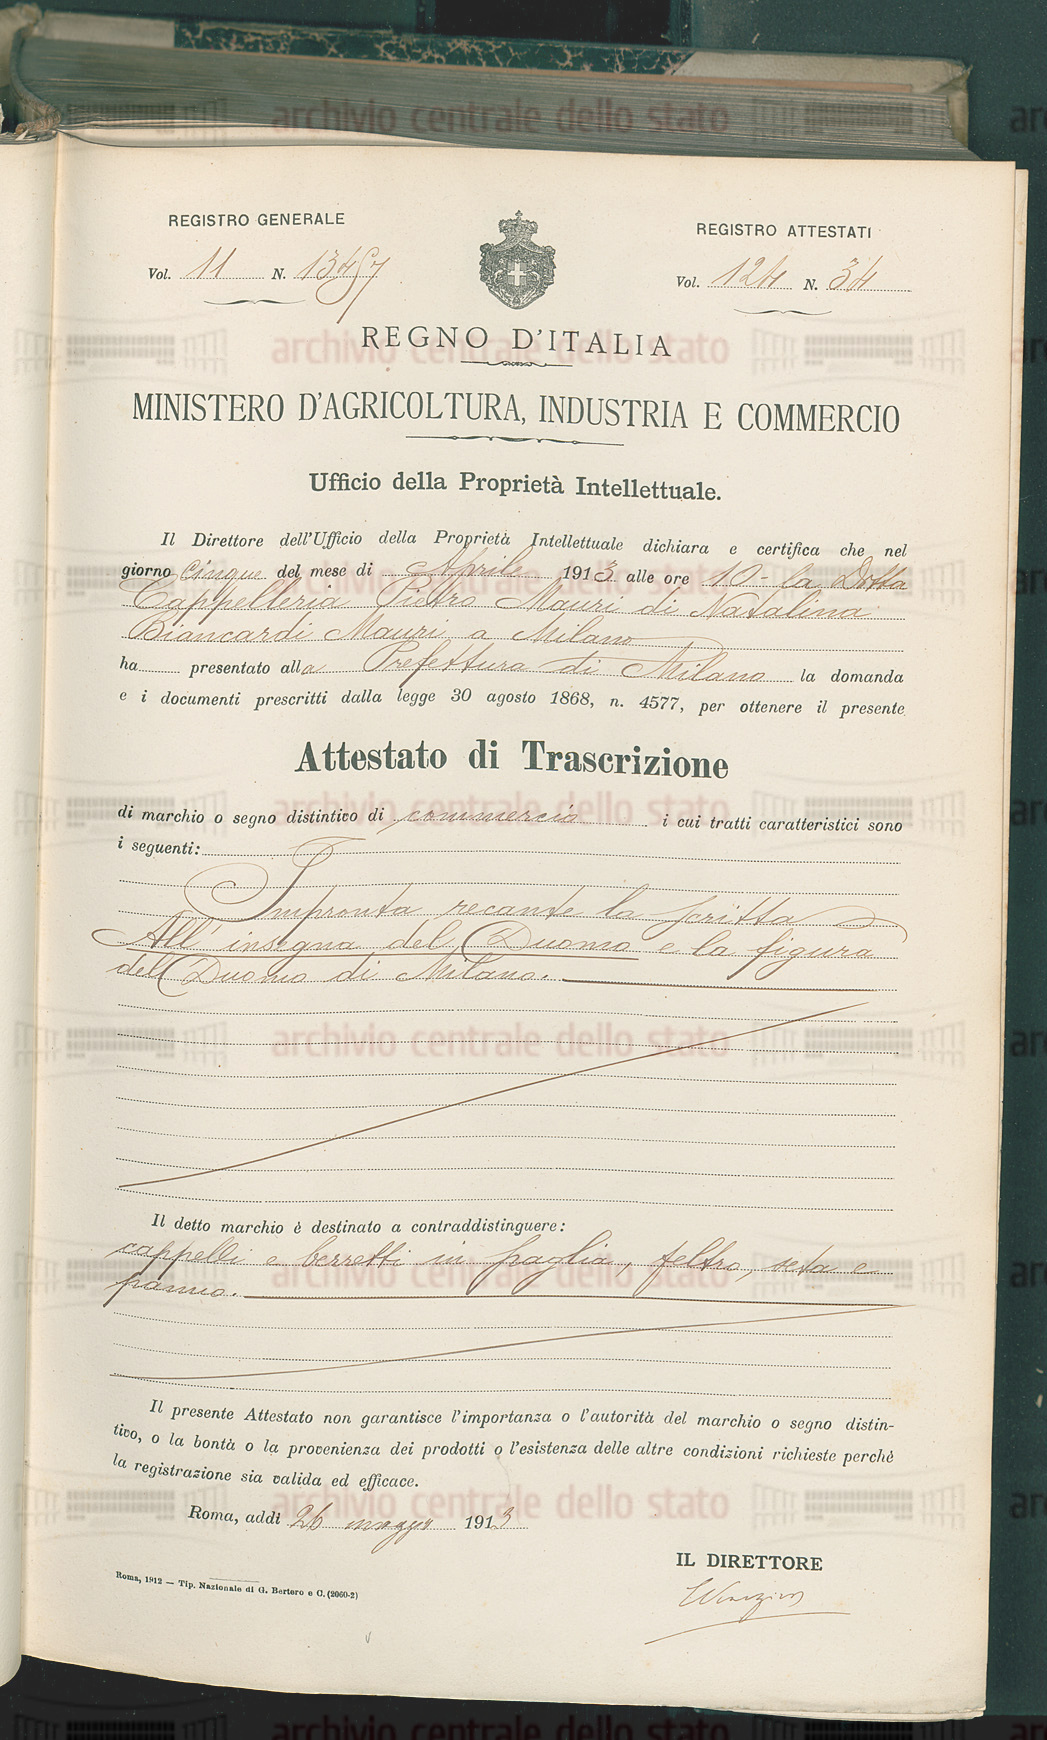 REGISTRO GENERALE
Vol. 11 N. 13457
REGISTRO ATTESTATI
Vol. 124 N. 34
REGNO D'ITALIA
MINISTERO D'AGRICOLTURA, INDUSTRIA E COMMERCIO
Ufficio della Proprietà Intellettuale.
Il Direttore dell'Ufficio della Proprietà Intellettuale dichiara e certifica che nel
giorno Cinque del mese di Aprile 1913 alle ore 10 - la Ditta
Cappelleria Pietro Mauri di Natalina
Biancardi Mauri, a Milano
ha presentato alla Prefettura di Milano la domanda
e i documenti prescritti dalla legge 30 agosto 1868, n. 4577, per ottenere il presente
Attestato di Trascrizione
di marchio o segno distintivo di commercio i cui tratti caratteristici sono
i seguenti:
Impronta recante la scritta
All'insegna del Duomo e la figura
del Duomo di Milano.
Il detto marchio è destinato a contraddistinguere:
cappelli e berretti in paglia, feltro, seta e
panno.
Il presente Attestato non garantisce l'importanza o l'autorità del marchio o segno distin-
tivo, o la bontà o la provenienza dei prodotti o l'esistenza delle altre condizioni richieste perchè
la registrazione sia valida ed efficace.
Roma, addì 26 maggio 1913
IL DIRETTORE
Roma, 1912 — Tip. Nazionale di G. Bertero e C. (2060-2)
archivio centrale dello stato